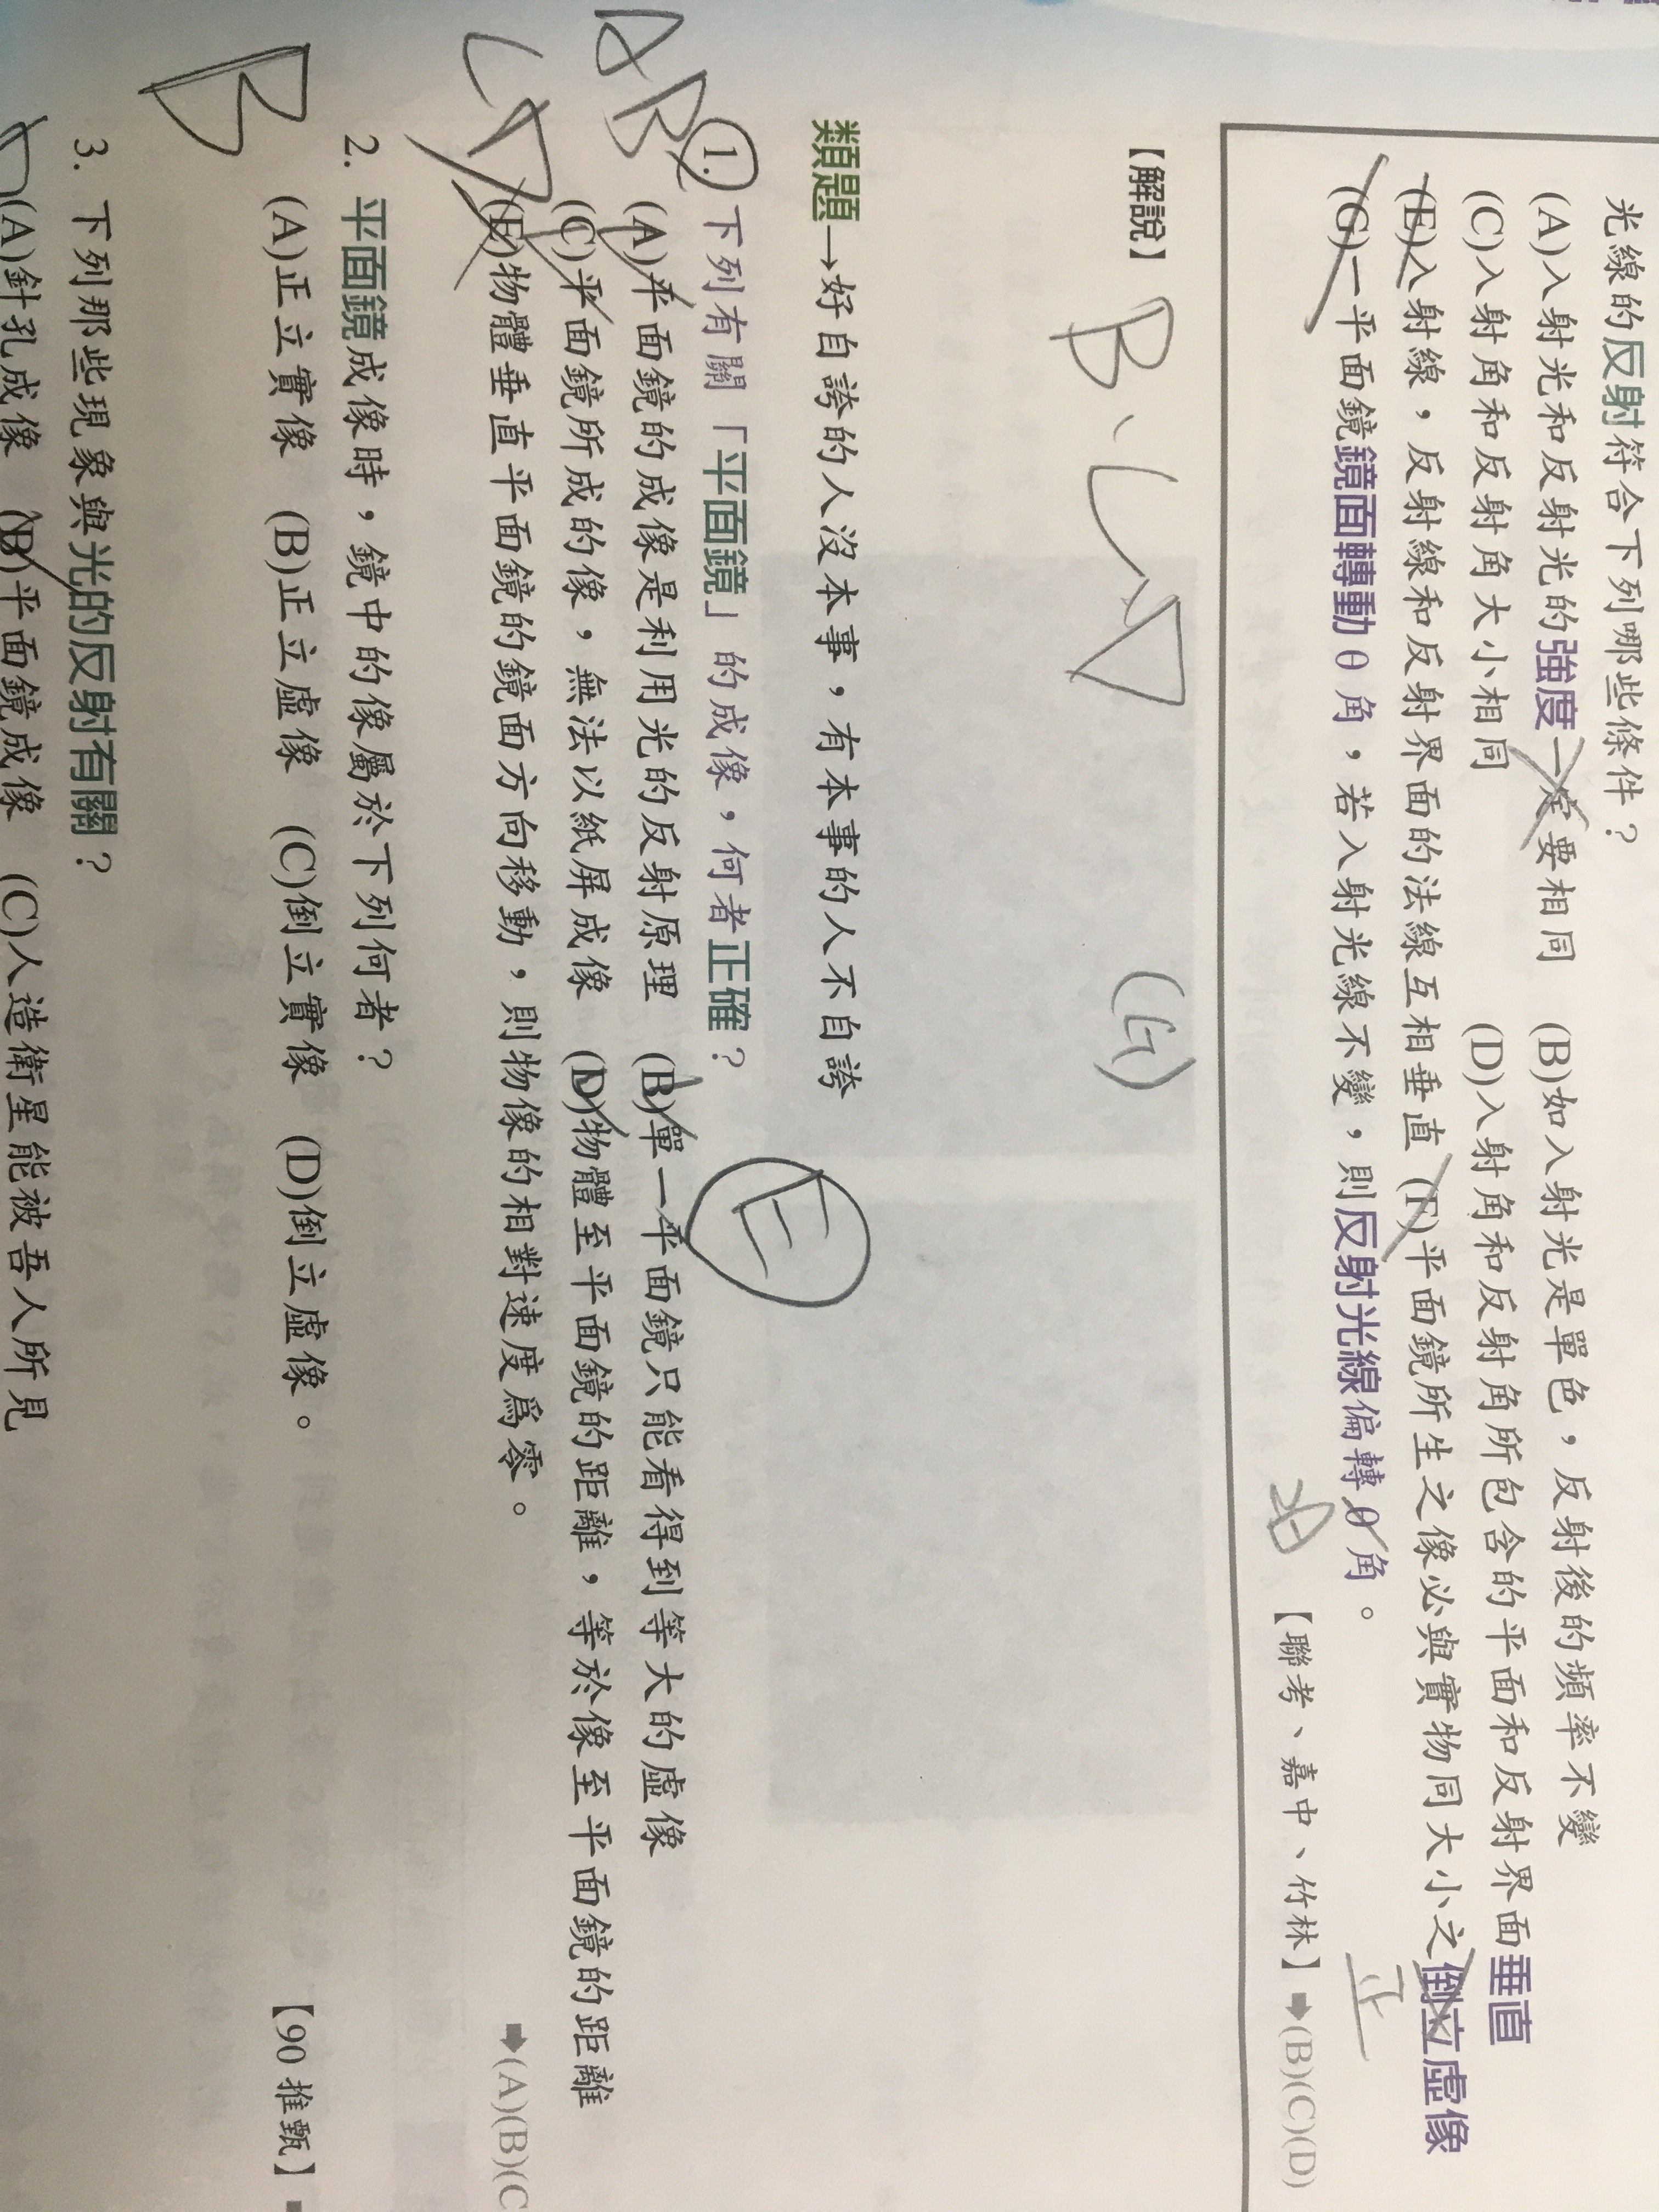 光線的反射符合下列哪些條件？
(A)入射光和反射光的強度一定要相同 (B)如入射光是單色，反射後的頻率不變
(C)入射角和反射角大小相同 (D)入射角和反射角所包含的平面和反射界面垂直
(E)入射線，反射線和反射界面的法線互相垂直 (F)平面鏡所生之像必與實物同大小之倒立虛像
正
(G)一平面鏡鏡面轉動θ角，若入射光線不變，則反射光線偏轉θ角。
【聯考、嘉中、竹林】➡(B)(C)(D)
【解說】
B、C D
(G)
類題→好自誇的人沒本事，有本事的人不自誇
E
AB
CD
1. 下列有關「平面鏡」的成像，何者正確？
(A)平面鏡的成像是利用光的反射原理 (B)單一平面鏡只能看得到等大的虛像
(C)平面鏡所成的像，無法以紙屏成像 (D)物體至平面鏡的距離，等於像至平面鏡的距離
(E)物體垂直平面鏡的鏡面方向移動，則物像的相對速度為零。
➡(A)(B)(C
B
2. 平面鏡成像時，鏡中的像屬於下列何者？
(A)正立實像 (B)正立虛像 (C)倒立實像 (D)倒立虛像。
【90 推甄】
3. 下列那些現象與光的反射有關？
(A)針孔成像 (B)平面鏡成像 (C)人造衛星能被吾人所見